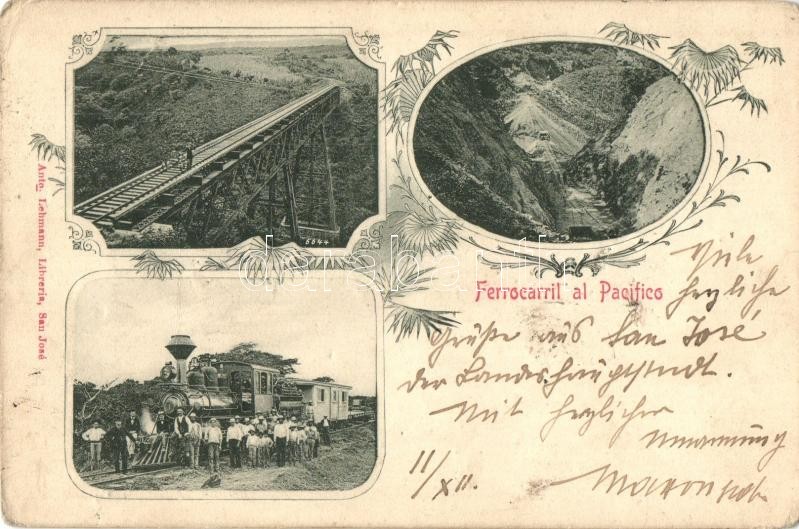 5044
Ferrocarril al Pacifico
Anto. Lehmann, Librería, San José
Viele
herzliche
Grüße aus San José
der Landeshauptstadt.
Mit herzlicher
Umarmung
11/XII.